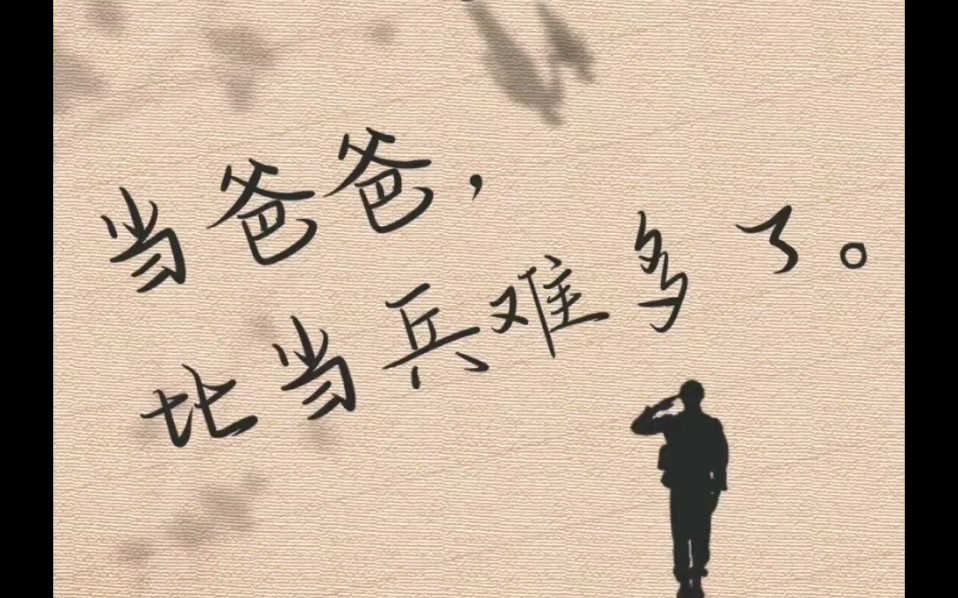 当爸爸，
比当兵难多了。